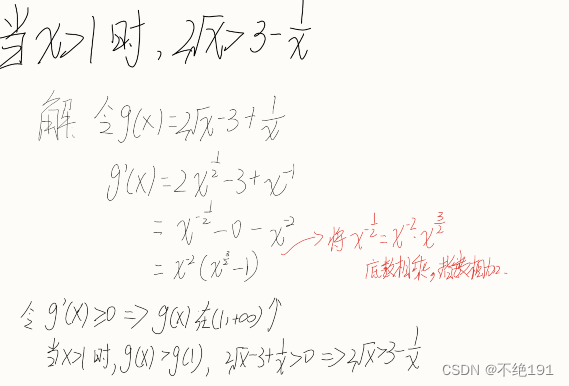 当x>1时,2√x>3-1/x
解 令g(x)=2√x-3+1/x
g'(x)=2x^(1/2)-3+x^(-1)
=x^(-1/2)-0-x^(-2)
=x^(-2)(x^(3/2)-1)
将x^(-1/2)=x^(-2)·x^(3/2)
底数相乘,指数相加.
令g'(x)≥0=>g(x)在(1,+∞)↑
当x>1时,g(x)>g(1), 2√x-3+1/x>0=>2√x>3-1/x
CSDN @不绝191